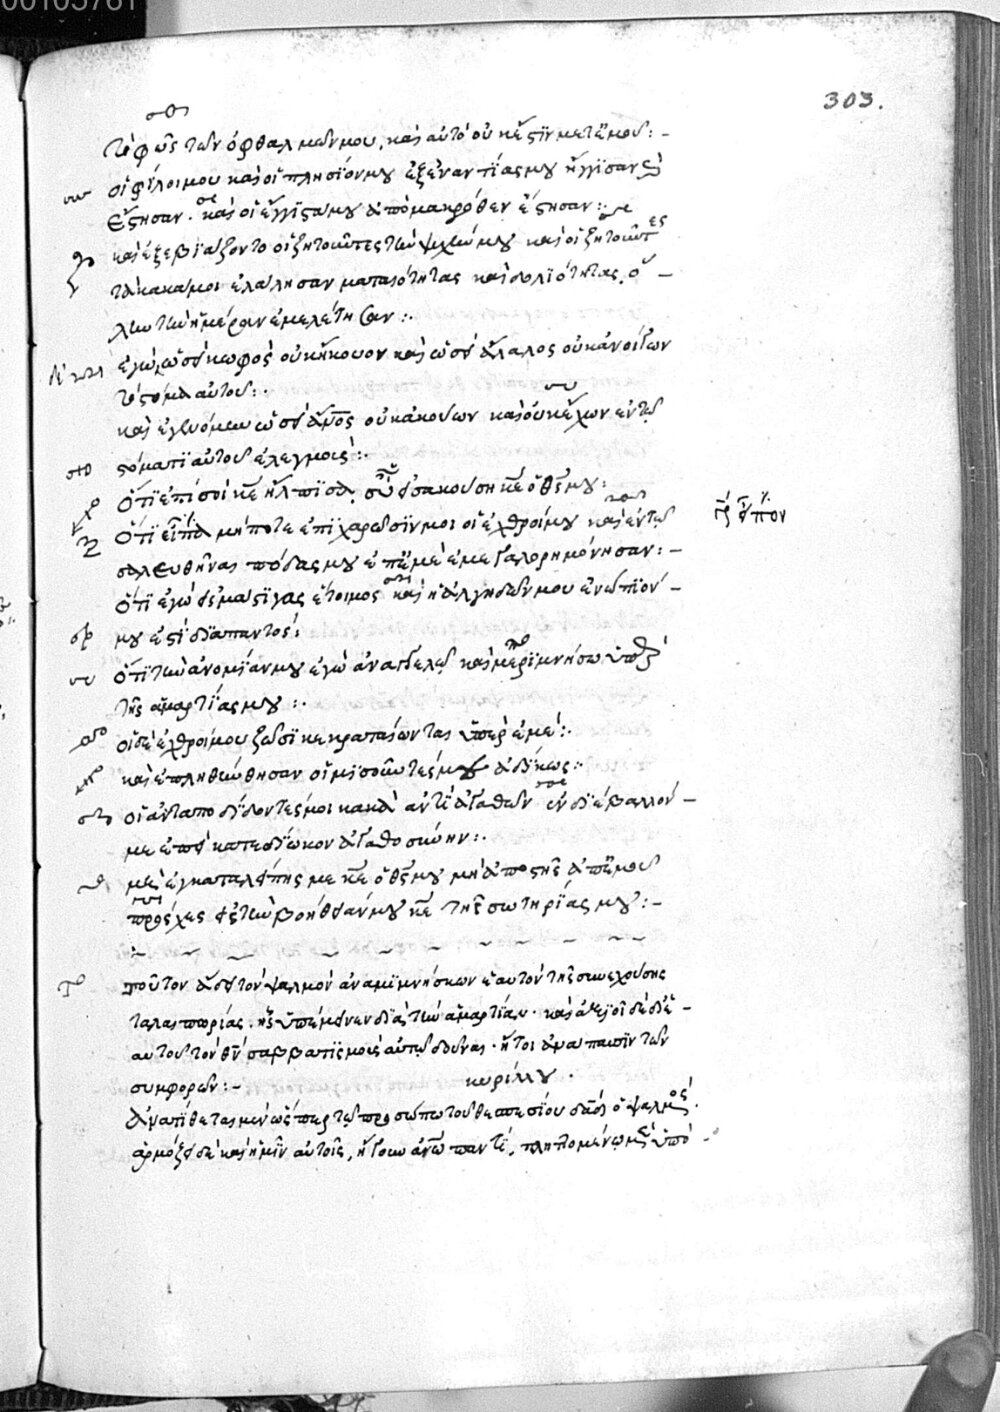 303.
τὸ φῶς τῶν ὀφθαλμῶν μου, καὶ αὐτὸ οὐκ ἔστιν μετ' ἐμοῦ:-
οἱ φίλοι μου καὶ οἱ πλησίον μου ἐξ ἐναντίας μου ἤγγισαν καὶ
ἔστησαν. καὶ οἱ ἔγγιστά μου ἀπὸ μακρόθεν ἔστησαν:
καὶ ἐξεβιάζοντο οἱ ζητοῦντες τὴν ψυχήν μου καὶ οἱ ζητοῦντες
τὰ κακά μοι ἐλάλησαν ματαιότητας καὶ δολιότητας, ὅ-
λην τὴν ἡμέραν ἐμελέτησαν:.
ἐγὼ ὡσεὶ κωφὸς οὐκ ἤκουον καὶ ὡσεὶ ἄλαλος οὐκ ἀνοίγων
τὸ στόμα αὐτοῦ:.
καὶ ἐγενόμην ὡσεὶ ἄνος οὐκ ἀκούων καὶ οὐκ ἔχων ἐν τῷ
στόματι αὐτοῦ ἐλεγμούς:.
ὅτι ἐπὶ σοὶ κε ἤλπισα, σὺ εἰσακούση κε ὁ θς μου:
ὅτι εἶπα μήποτε ἐπιχαρῶσιν μοι οἱ ἐχθροί μου καὶ ἐν τῷ
σαλευθῆναι πόδας μου ἐπ' ἐμὲ ἐμεγαλορημόνησαν:-
ὅτι ἐγὼ εἰς μάστιγας ἕτοιμος καὶ ἡ ἀλγηδών μου ἐνώπιόν-
μου ἐστὶ διαπαντός:
ὅτι τὴν ἀνομίαν μου ἐγὼ ἀναγγελῶ καὶ μεριμνήσω ὑπὲρ
τῆς ἁμαρτίας μου:.
οἱ δὲ ἐχθροί μου ζῶσι κεκραταίωνται ὑπὲρ ἐμέ:.
καὶ ἐπληθύνθησαν οἱ μισοῦντές με ἀδίκως:.
οἱ ἀνταποδιδόντες μοι κακὰ ἀντὶ ἀγαθῶν ἐνδιέβαλλόν-
με ἐπεὶ κατεδίωκον ἀγαθοσύνην:.
μὴ ἐγκαταλείπης με κε ὁ θς μου μὴ ἀποστῇς ἀπ' ἐμοῦ
πρόσχες εἰς τὴν βοήθειάν μου κε τῆς σωτηρίας μου:-
ποῦτον ἄδει τὸν ψαλμὸν ἀναμιμνήσκων ἑαυτὸν τῆς συνεχούσης
ταλαιπωρίας, ἧς ὑπέμεινεν διὰ τὴν ἁμαρτίαν.
αὐτοῦ τὸν θν σαββατισμοὺς αὐτῷ δοῦναι. ἤτοι ἀνάπαυσιν τῶν
συμφορῶν:- κυρίλλου.
ἀνατίθεται μὲν ὥσπερ τῷ προσώπῳ τοῦ θεσπεσίου δαδ ὁ ψαλμός.
ἁρμόζει δὲ καὶ ἡμῖν αὐτοῖς, ἤγουν ἀνω παντί, ὑπὸ